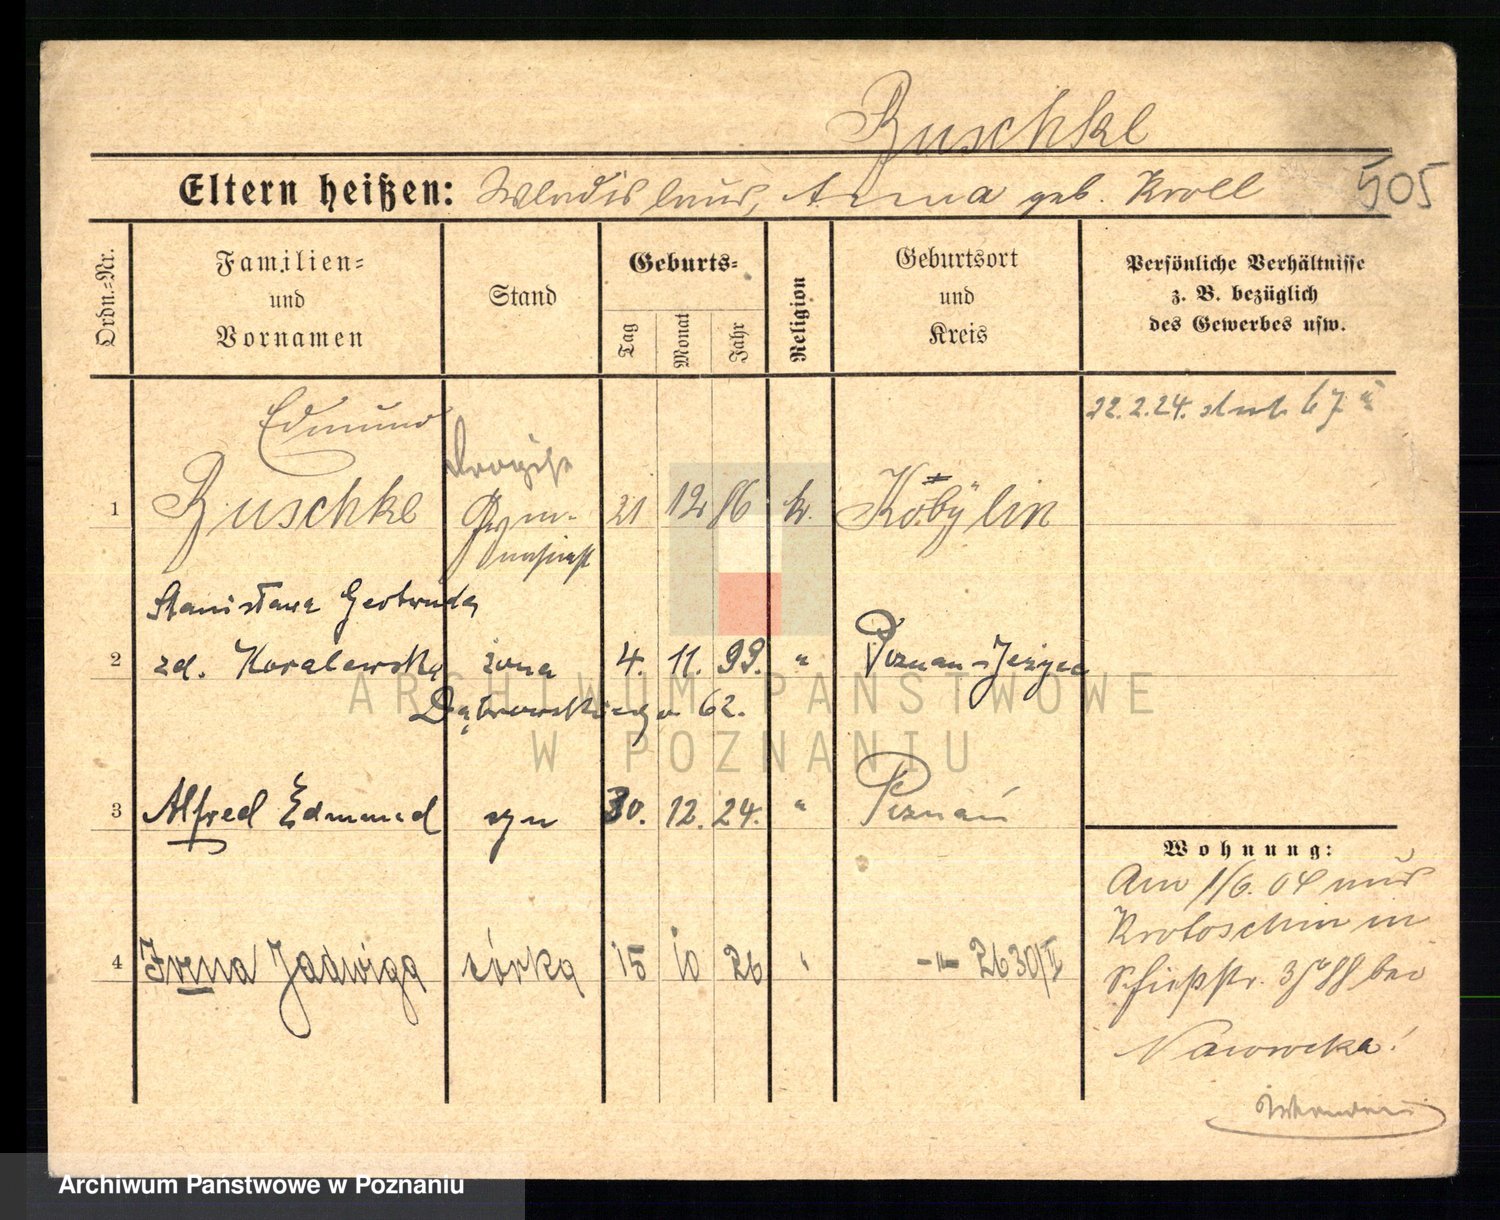 Buschke
Eltern heißen: Wladislaus, Anna geb. Kroll 505
Ordn.-Nr.
Familien-
und
Vornamen
Stand
Geburts-
Tag
Monat
Jahr
Religion
Geburtsort
und
Kreis
Persönliche Verhältnisse
z. B. bezüglich
des Gewerbes usw.
22.2.24.
Edmund
Drogist
1 Buschke 21 12 86 k. Kobylin
Gym-
nasiast
Stanisława Gertruda
2 zd. Koralewska żona 4. 11. 99. " Poznan-Jeżyce
Dąbrowskiego 62.
3 Alfred Edmund syn 30. 12. 24. " Poznań
4 Irena Jadwiga córka 15 10 26 " -"- 2630/I
Wohnung:
Am 1/6. 04 aus
Krotoschin in
Schießstr. bei
Nawrocka!
ARCHIWUM PAŃSTWOWE
W POZNANIU
Archiwum Państwowe w Poznaniu